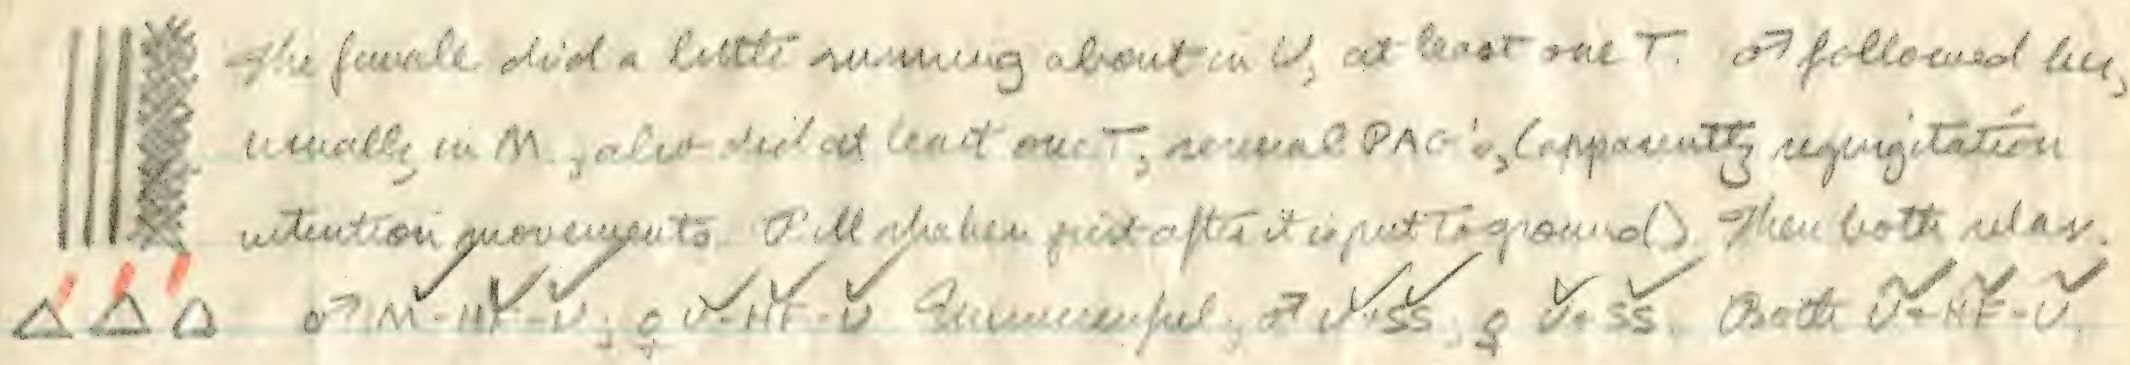 The female did a little running about in U, at least one T. ♂ followed her,
usually in M, also did at least one T, several PAG's, (apparently regurgitation
intention movements. Bill shaken just after it is put to ground). Then both relax.
♂ M-HF-U, ♀ U-HF-U Unsuccessful, ♂ U+SS, ♀ U+SS. Both U-HF-U.